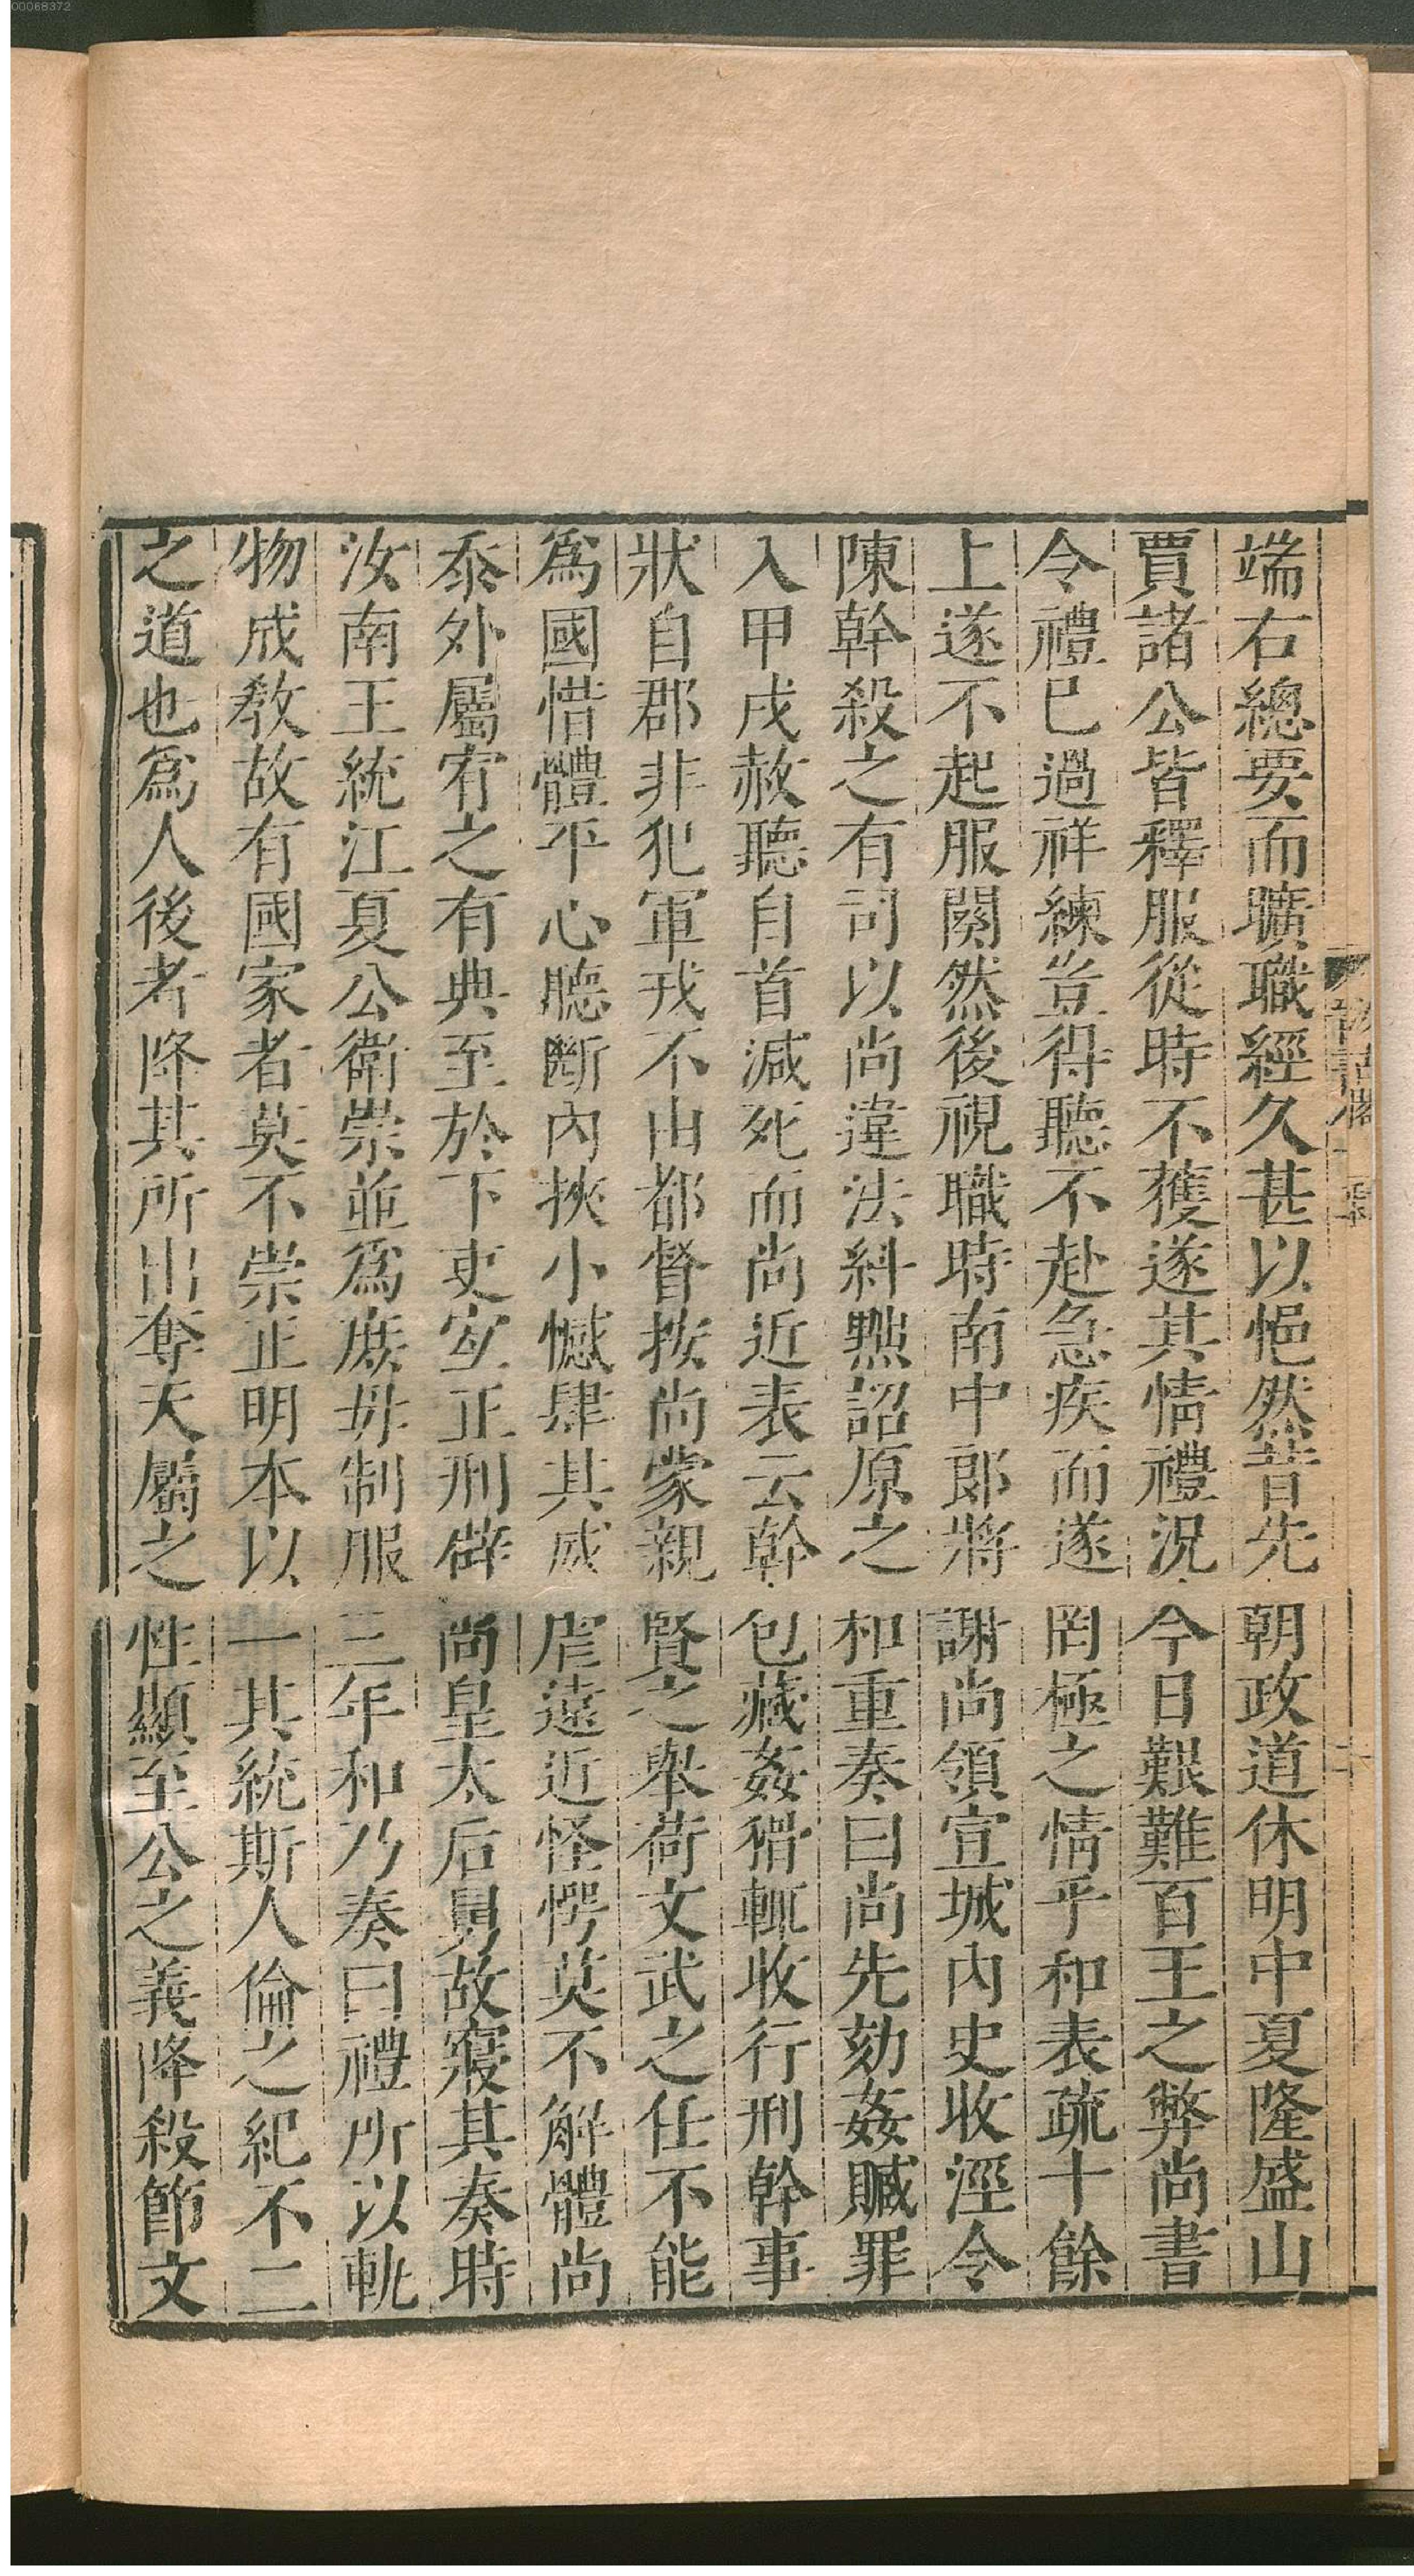 00068372
端右總要而曠職經久甚以悒然昔先朝政道休明中夏隆盛山
賈諸公皆釋服從時不獲遂其情禮況今日艱難百王之弊尚書
令禮已過祥練豈得聽不赴急疾而遂罔極之情乎和表疏十餘
上遂不起服闋然後視職時南中郎將謝尚領宣城內史收涇令
陳幹殺之有司以尚違法糾黜詔原之和重奏曰尚先劾姦贓罪
入甲戌赦聽自首減死而尚近表云幹包藏姦猾輒收行刑幹事
狀自郡非犯軍戎不由都督按尚蒙親賢之舉荷文武之任不能
爲國惜體平心聽斷內挾小憾肆其威虐遠近怪愕莫不解體尚
忝外屬宥之有典至於下吏宜正刑辟尚皇太后舅故寢其奏時
汝南王統江夏公衛崇並爲庶母制服三年和乃奏曰禮所以軌
物成教故有國家者莫不崇正明本以一其統斯人倫之紀不二
之道也爲人後者降其所出奪天屬之性顯至公之義降殺節文